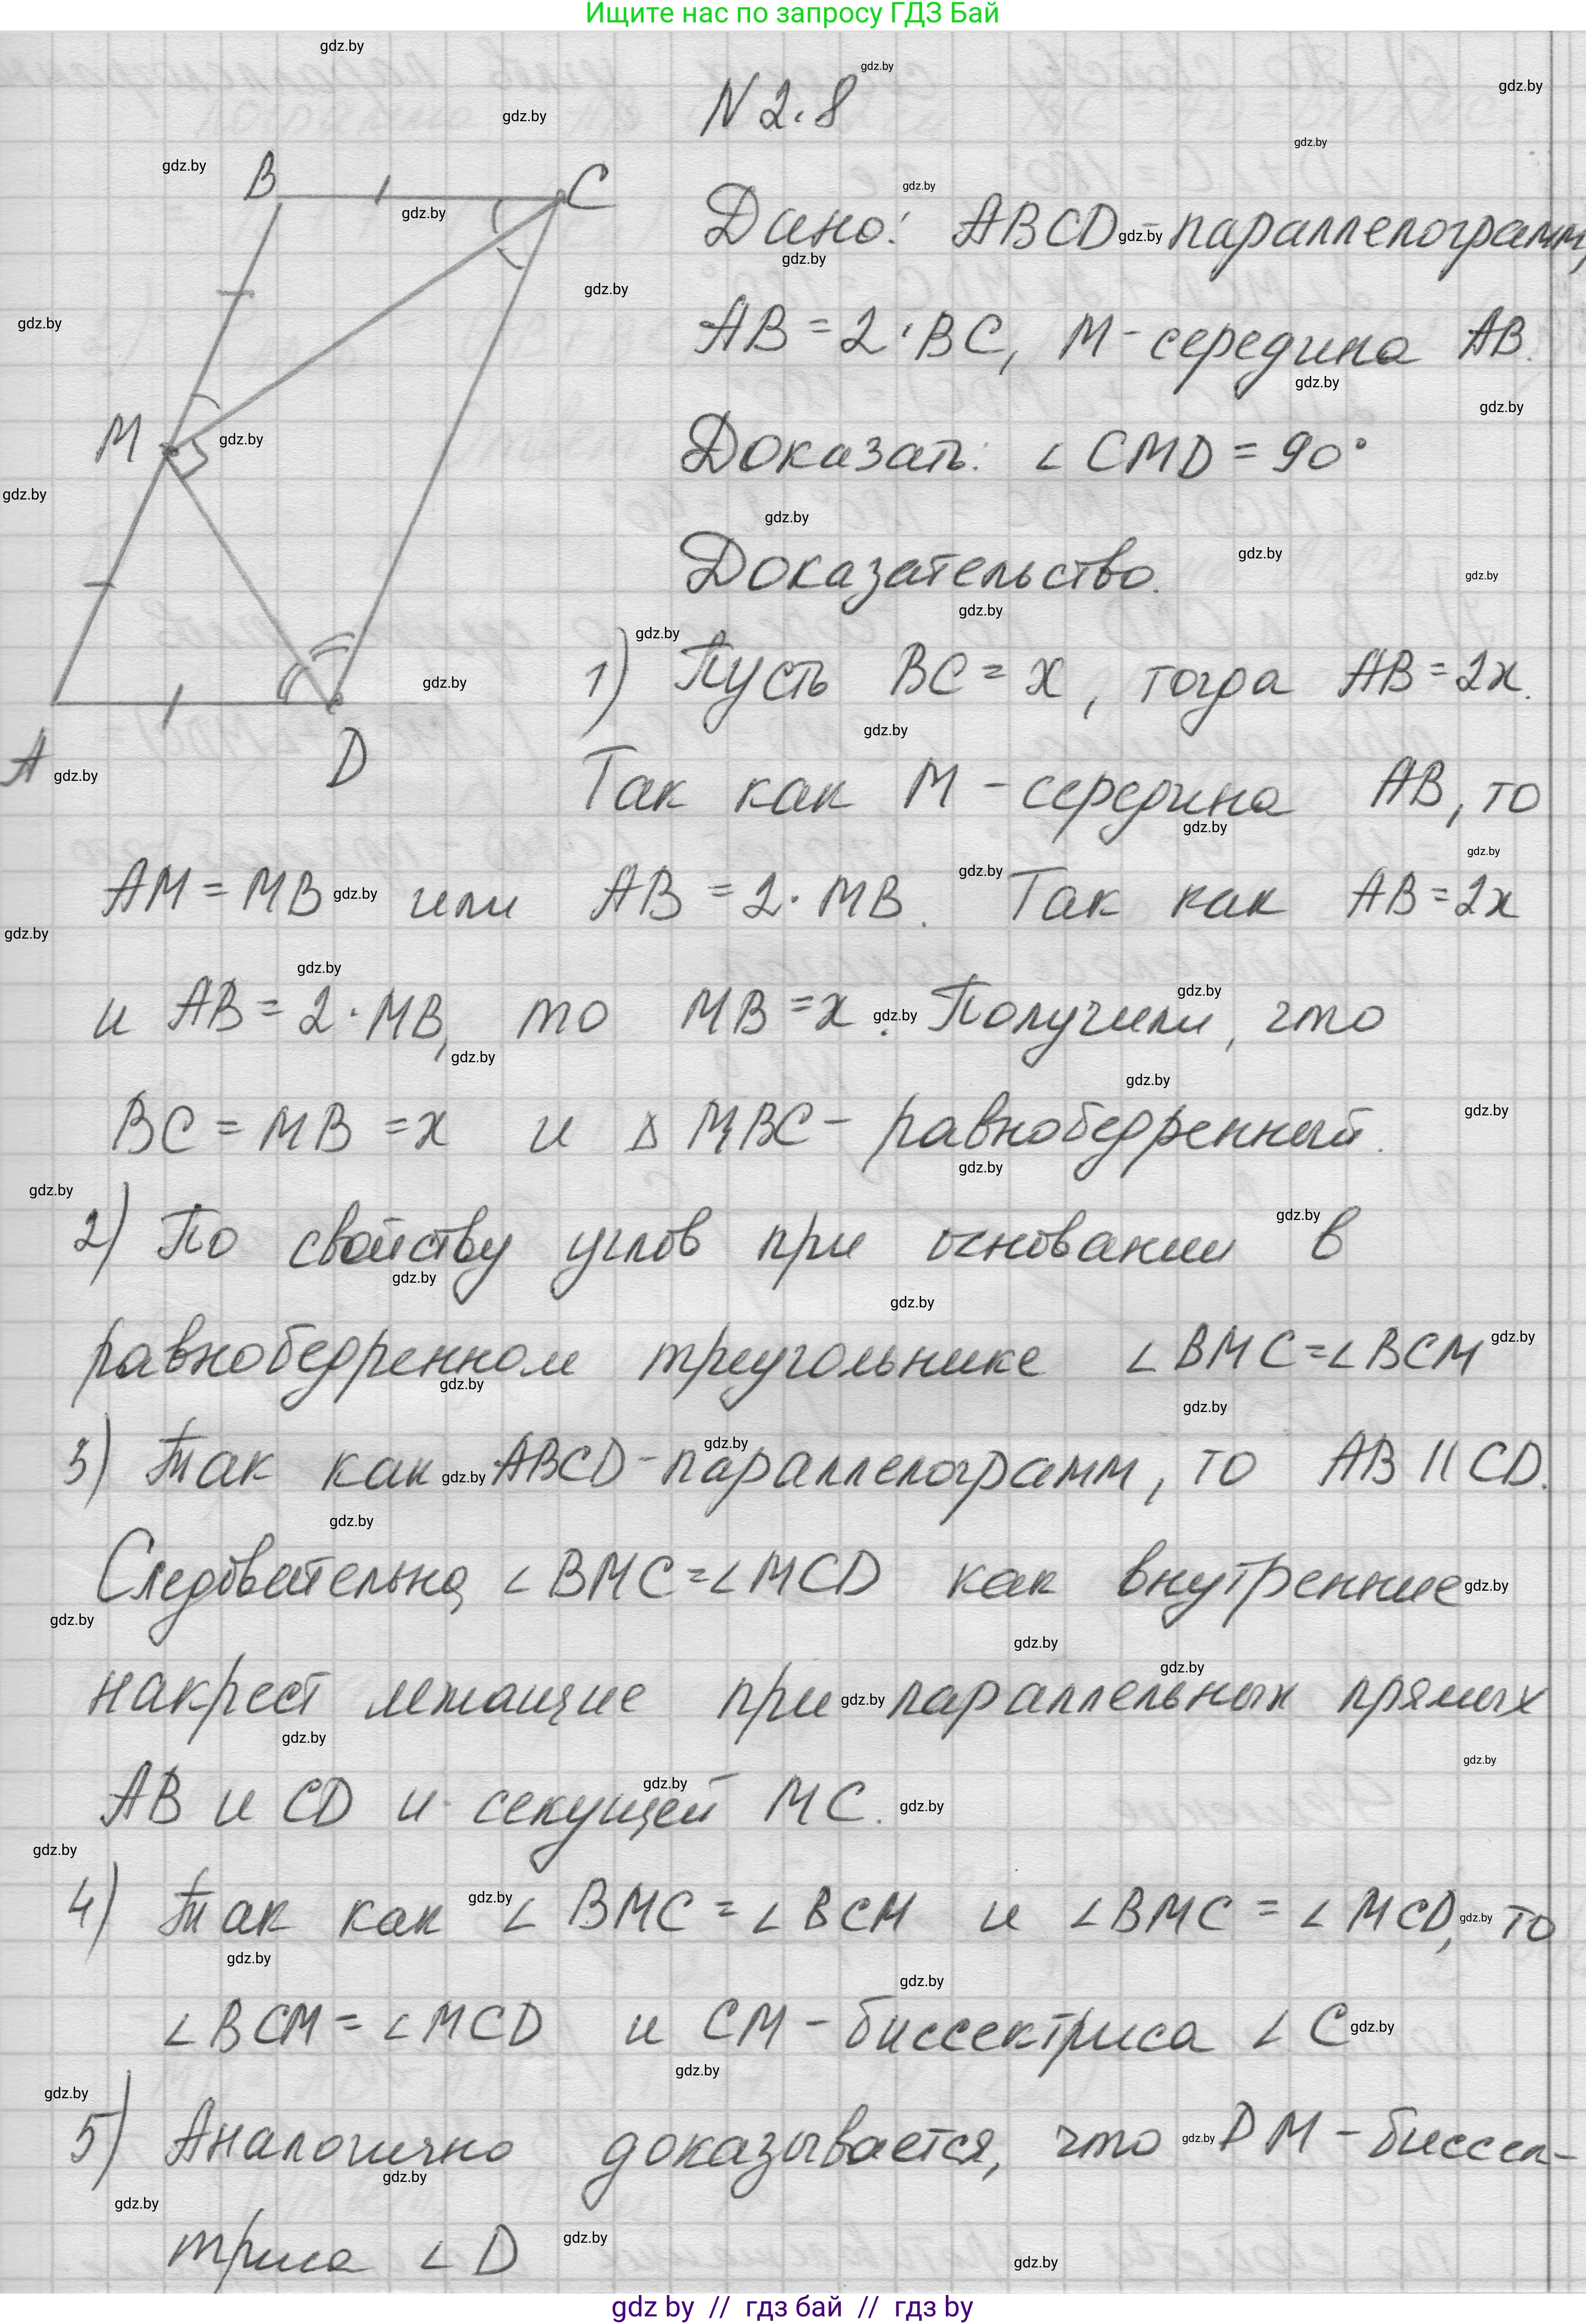 Ищите нас по запросу ГДЗ Бай
N 2.8
B
C
M
A
D
Дано: ABCD-параллелограмм,
AB = 2·BC, M-середина AB.
Доказать: ∠CMD = 90°
Доказательство.
1) Пусть BC = x, тогда AB = 2x.
Так как M - середина AB, то
AM = MB или AB = 2·MB. Так как AB = 2x
и AB = 2·MB, то MB = x. Получили, что
BC = MB = x и △MBC - равнобедренный.
2) По свойству углов при основании в
равнобедренном треугольнике ∠BMC = ∠BCM
3) Так как ABCD-параллелограмм, то AB || CD.
Следовательно, ∠BMC = ∠MCD как внутренние
накрест лежащие при параллельных прямых
AB и CD и секущей MC.
4) Так как ∠BMC = ∠BCM и ∠BMC = ∠MCD, то
∠BCM = ∠MCD и CM - биссектриса ∠C
5) Аналогично доказывается, что DM - биссек-
триса ∠D
gdz by // гдз бай // гдз by